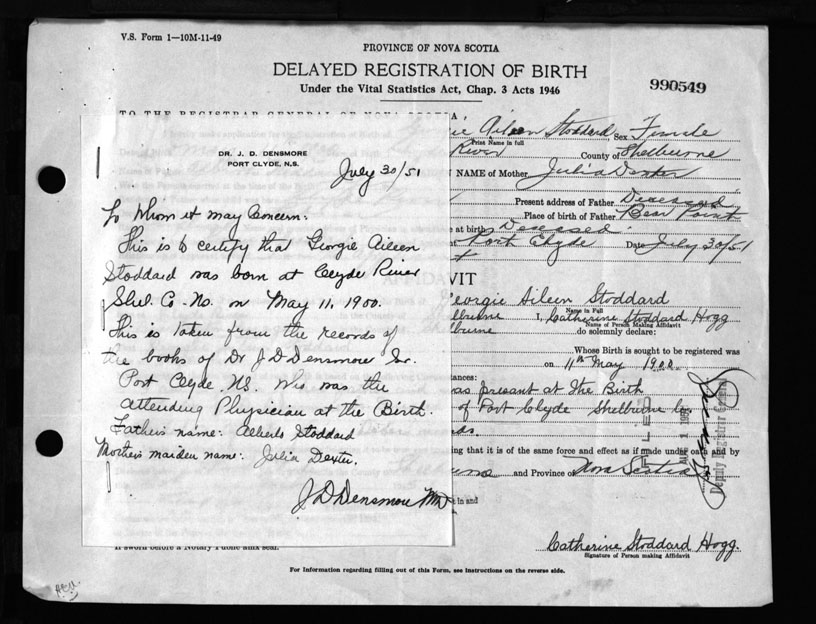 V.S. Form 1—10M-11-49
PROVINCE OF NOVA SCOTIA
DELAYED REGISTRATION OF BIRTH
Under the Vital Statistics Act, Chap. 3 Acts 1946
990549
TO THE REGISTRAR GENERAL OF NOVA
DR. J. D. DENSMORE
PORT CLYDE, N.S.
July 30/51
To Whom it may Concern:
This is to certify that Georgie Aileen
Stoddard was born at Clyde River
Shel. Co. N.S. on May 11, 1900.
This is taken from the records of
the books of Dr J D Densmore Sr.
Port Clyde. NS. Who was the
attending Physician at the Birth.
Fathers name: Alberto Stoddard
Mothers maiden name: Julia Dexter.
J D Densmore MD
Aileen Stoddard Sex Female
Print Name in full
River County of Shelburne
NAME of Mother Julia Dexter
Present address of Father Deceased
Place of birth of Father Bear Point
at birth Deceased
Port Clyde Date July 30/51
VIT
Georgie Aileen Stoddard
Name in Full
I, Catherine Stoddard Hogg
Name of Person Making Affidavit
do solemnly declare:
Whose Birth is sought to be registered was
on 11th May 1900.
tances:
was present at the Birth
of Port Clyde Shelburne Co.
FILED
Deputy Registrar General
ing that it is of the same force and effect as if made under oath and by
and Province of Nova Scotia
in and
Catherine Stoddard Hogg.
Signature of Person making Affidavit
If sworn before a Notary Public affix seal.
For Information regarding filling out of this Form, see Instructions on the reverse side.